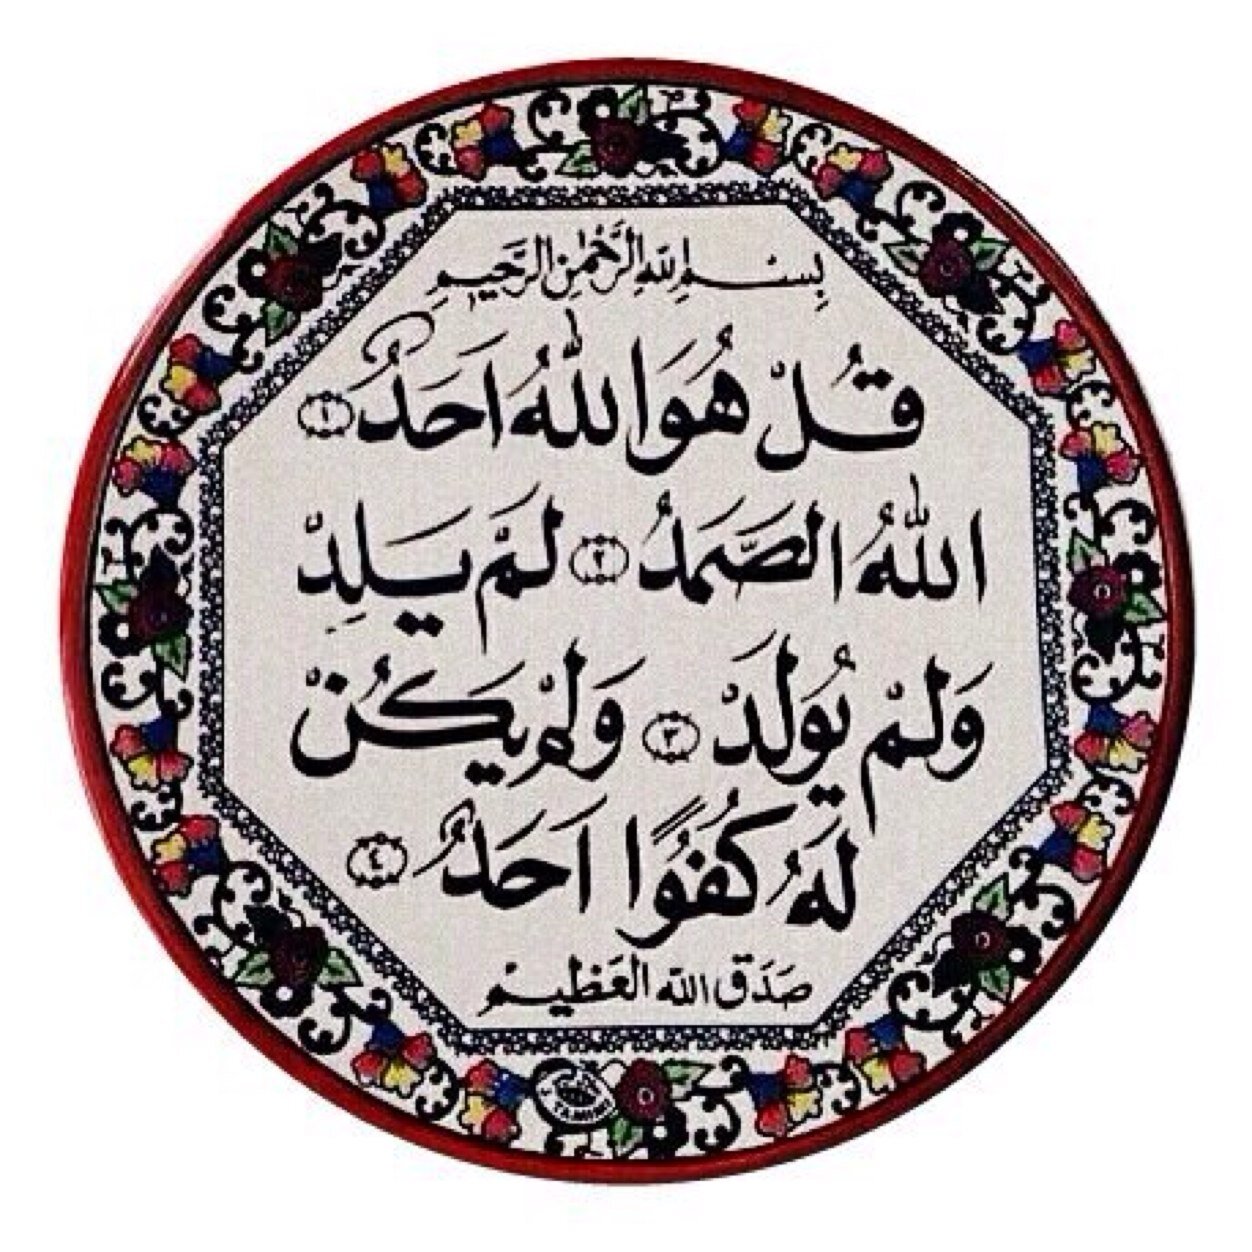 بِسْمِ اللهِ الرَّحْمٰنِ الرَّحِيمِ
قُلْ هُوَ اللهُ اَحَدٌ ١
اللهُ الصَّمَدُ ٢ لَمْ يَلِدْ
وَلَمْ يُولَدْ ٣ وَلَمْ يَكُنْ
لَهُ كُفُوًا اَحَدٌ ٤
صَدَقَ اللّٰه العَظِيمْ
TAMIMI